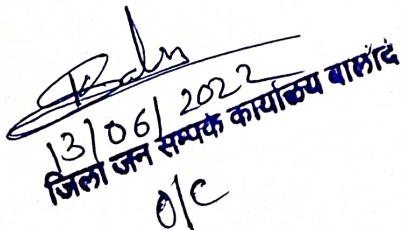 13/06/2022
जिला जन सम्पर्क कार्यालय बालोद
O/C